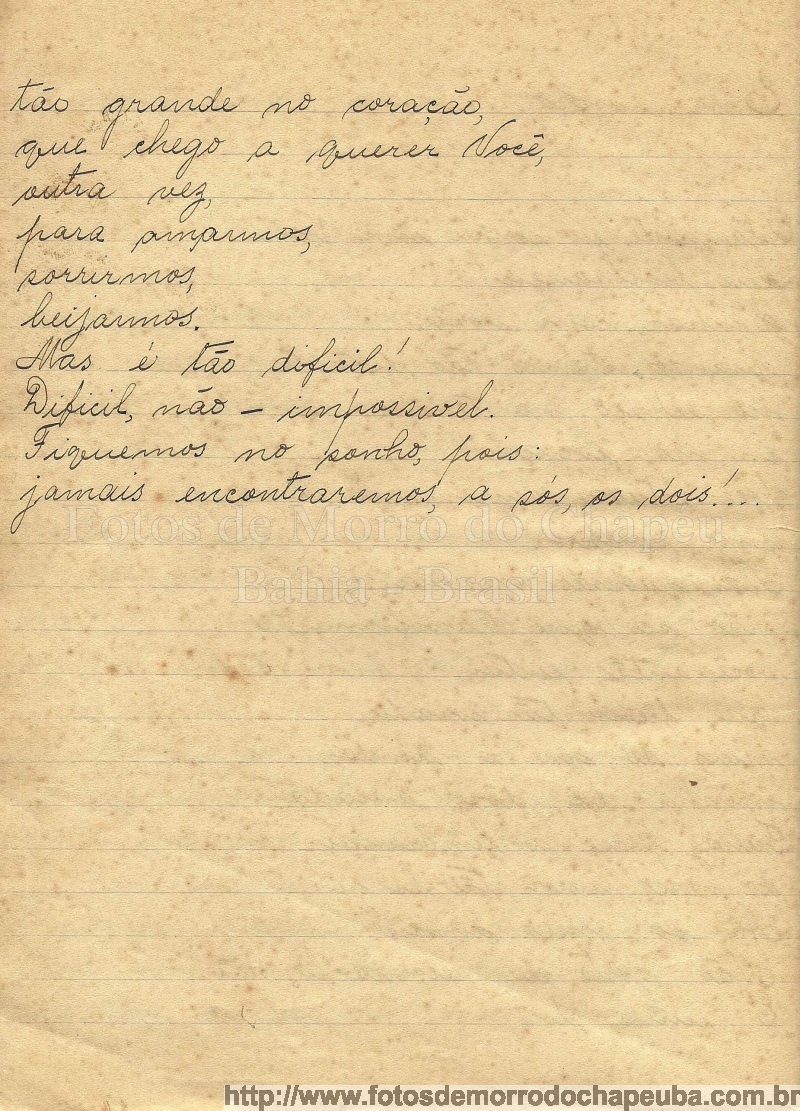 tão grande no coração,
que chego a querer Você,
outra vez,
para amarmos,
sorrirmos,
beijarmos.
Mas é tão dificil!
Dificil, não – impossivel.
Fiquemos no sonho, pois:
jamais encontraremos, a sós, os dois!...
Fotos de Morro do Chapéu
Bahia - Brasil
http://www.fotosdemorrodochapeuba.com.br